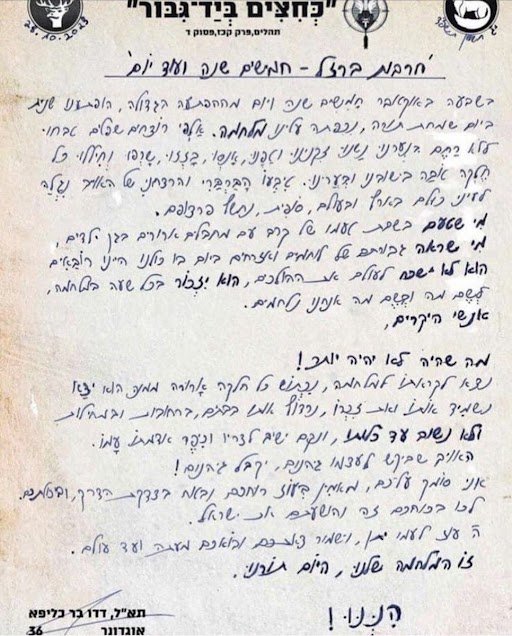 28.10.2023
"כְּחִצִּים בְּיַד־גִּבּוֹר"
תהלים, פרק קכז, פסוק ד
'חרבות ברזל – חמישים שנה ועוד יום'
בשבעה באוקטובר חמישים שנה ויום מההפתעה הגדולה, הופתענו שנית
ביום שמחת תורה, נכפתה עלינו מלחמה. אלפי רוצחים שפלים טבחו
ללא רחם בנערינו נשנו זקנינו וטפנו, אנסו, בָּזזו, שרפו וחִיללו כל
חלקה טובה בישובינו ובערינו. טִבעו הבַּרבָּרי והרצחני של האויב נִגלה
לעיני כולם בארץ ובעולם, סופית, נחשף פרצופם.
מי שטעם בשבת טעמו של קרב עם מחבלים ארורים בגן ילדים,
מי שראה גבורתם של לוחמים ואזרחים ביום בו כולנו היינו רובאים
הוא לא ישכח לעולם את ההולכים, הוא יִזכור בכל שעה במלחמה,
לשֵם מה ובשֵם מה אנחנו נלחמים.
אנשי היקרים,
מה שהיה לא יהיה יותר!
נצא לקראתו למלחמה, נכתוש כל חלקה ארורה ממנה הוא יצא
נשמיד אותו ואת זכרו, נרדוף אותו בבתים, ברחובות ובמחילות
ולא נשוב עד כלותו, ונקם ישיב לצריו וכִפר אדמתו עַמו.
האויב שביקש לעצמו גהנום, יקבל גהנום!
אני סומך עליכם, מאמין בעוז רוחכם ובטוח בצדקת הדרך, ובטלתם.
לכו בכוחכם זה והושעתם את ישראל.
ה' עוז לעמו יתן, וישמור צאתכם ובואכם מעתה ועד עולם.
זו המלחמה שלנו, היום תורנו.
הִנֵנוּ!
תא"ל, דדו בר כליפא
אוגדונר
36